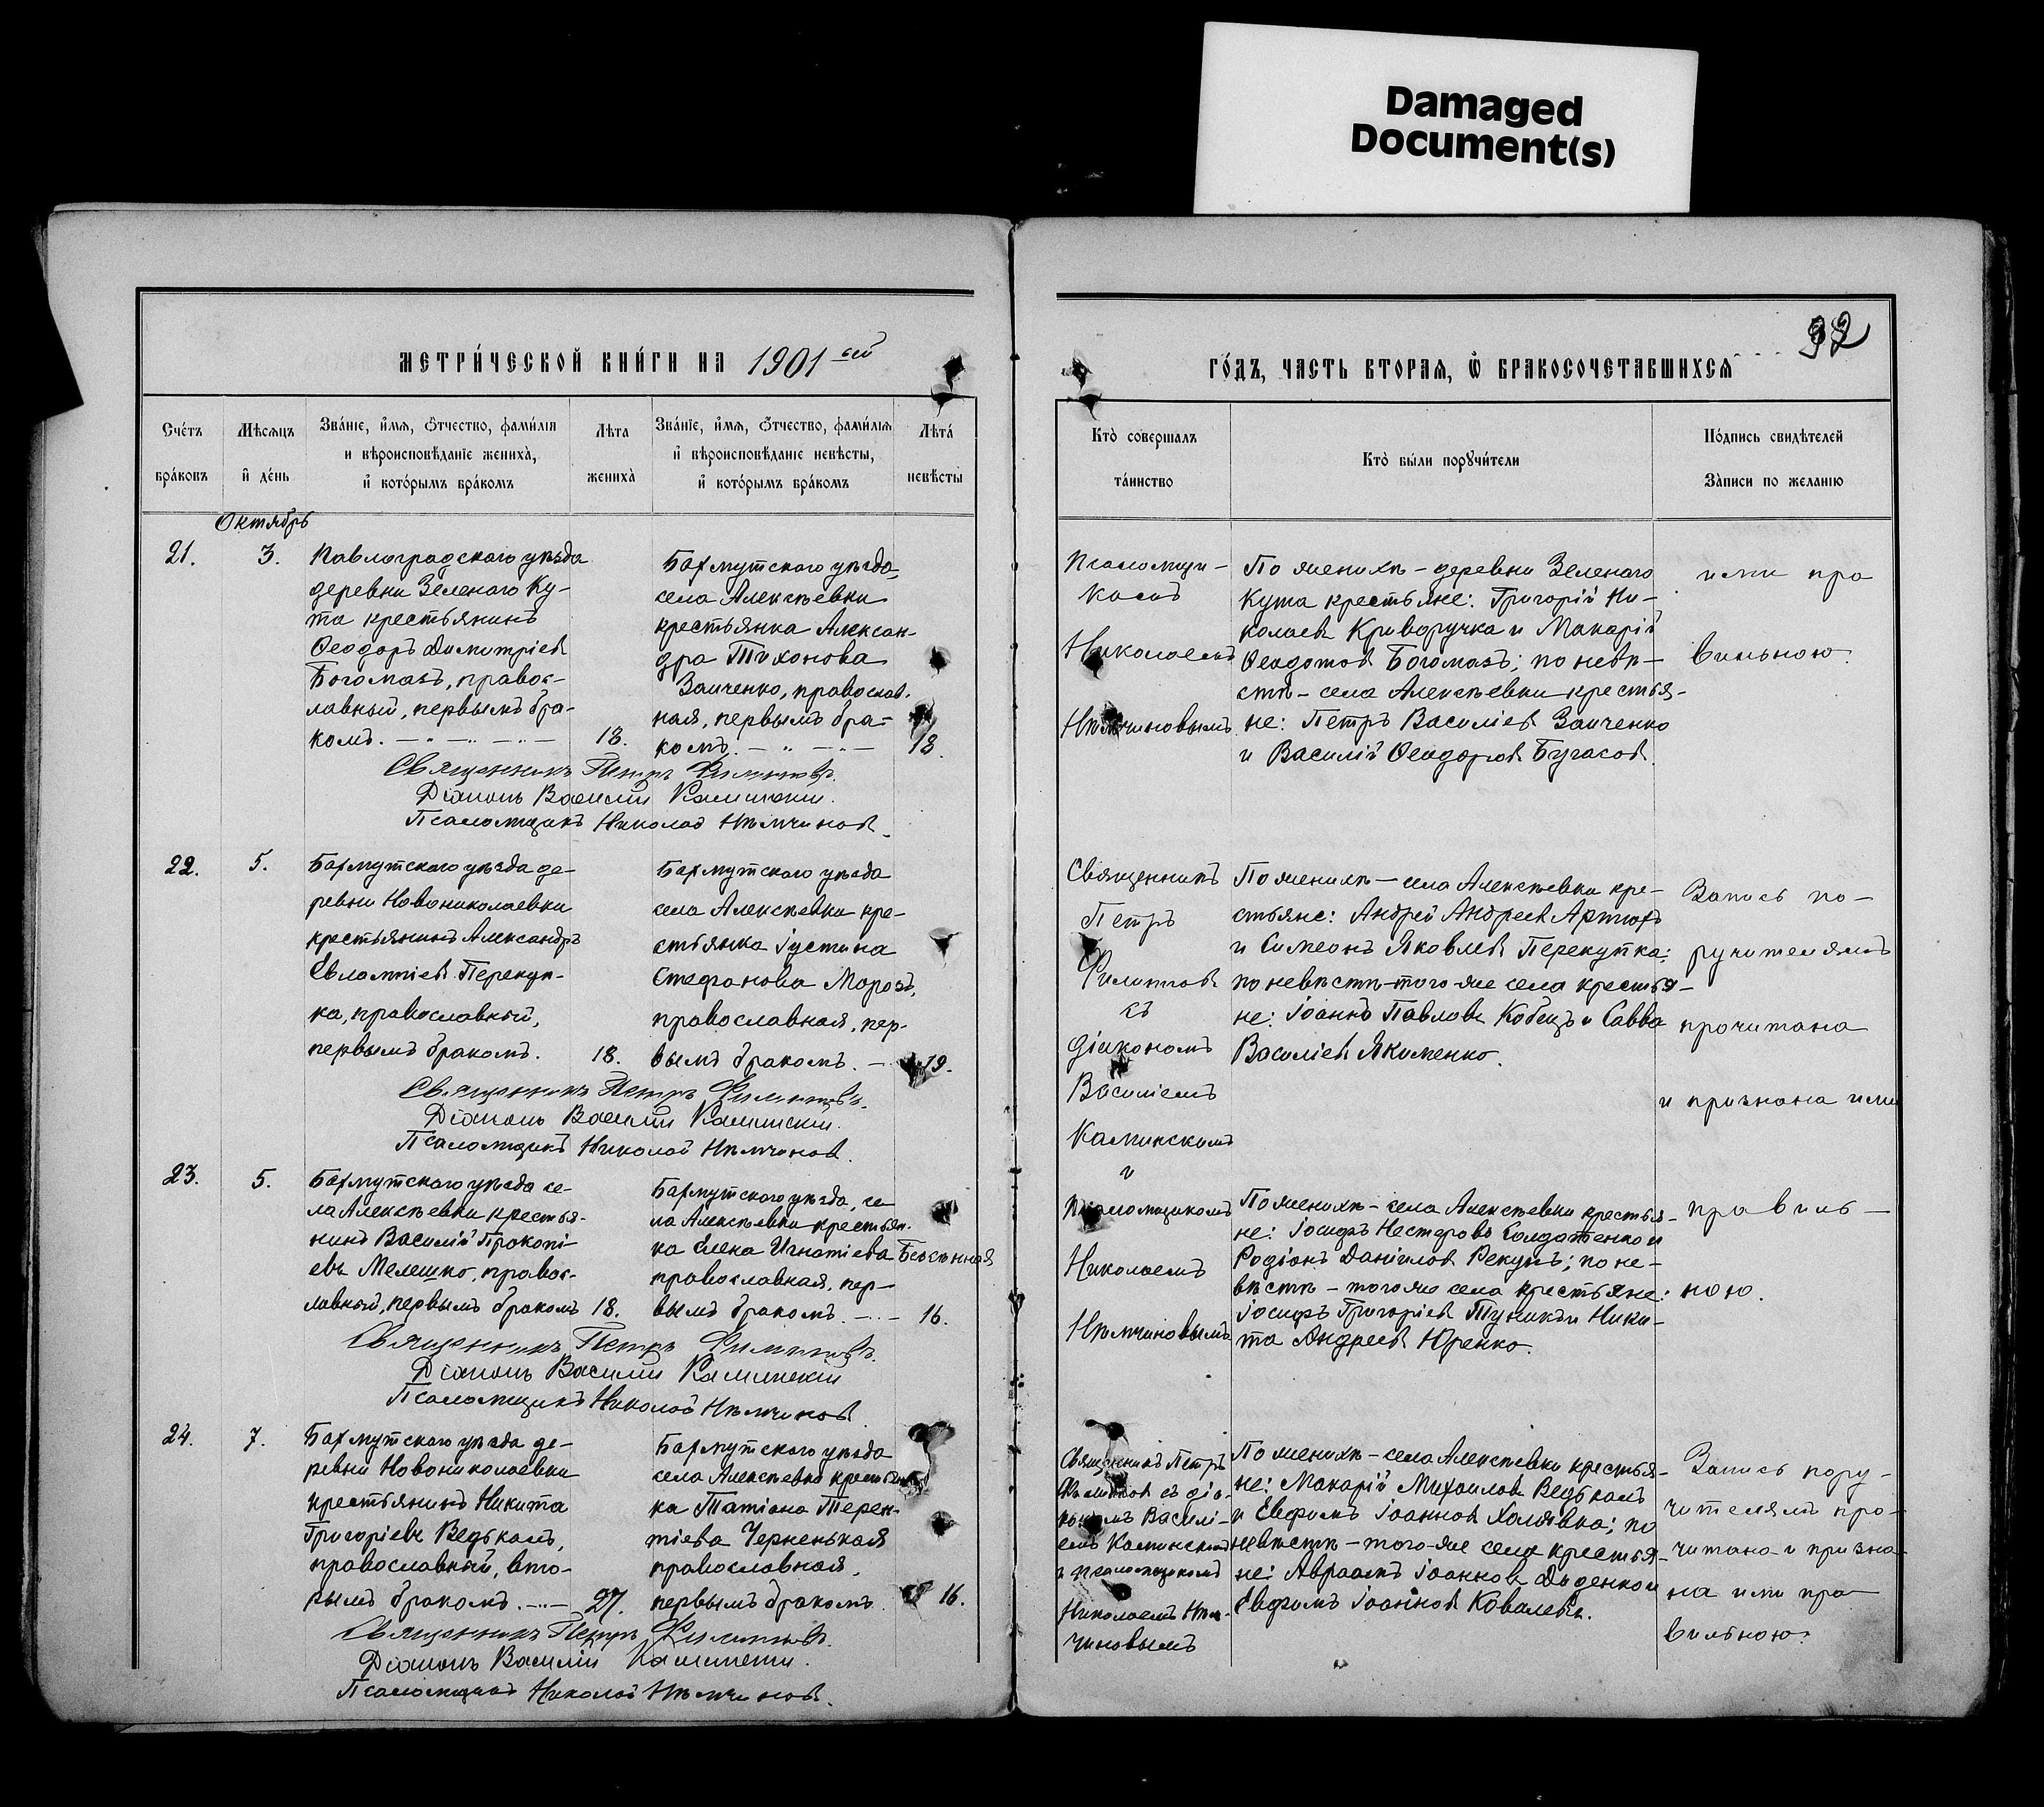 Damaged
Document(s)
МЕТРИ́ЧЕСКОЙ КНИ́ГИ НА 1901 ый
Сче́тъ бра́ковъ
Мѣсяцъ и де́нь
Зва́нїе, и́мя, ѻ́тчество, фами́лїя
и вѣроисповѣ́данїе жениха̀,
и҆ кото́рымъ бра́комъ
Лѣта жениха̀
Зва́нїе, и́мя, ѻ́тчество, фами́лїя
и҆ вѣроисповѣ́данїе невѣ́сты,
и҆ кото́рымъ бра́комъ
Лѣта́ невѣ́сты
Октябрь
21. 3.
Павлоградскаго уѣзда
деревни Зеленаго Ку-
та крестьянинъ
Ѳеодоръ Димитріев
Богомазъ, правос-
лавный, первымъ бра-
комъ. 18.
Бахмутскаго уѣзда,
села Алексѣевки
крестьянка Алексан-
дра Тихонова
Заиченко, православ.
ная, первымъ бра-
комъ. 18.
Священникъ Петръ Филипповъ.
Діаконъ Василій Калинскій.
Псаломщикъ Николай Нѣмчинов.
22. 5.
Бахмутскаго уѣзда де-
ревни Новониколаевки
крестьянинъ Александръ
Евлампіев Перекуп-
ка, православный,
первымъ бракомъ. 18.
Бахмутскаго уѣзда
села Алексѣевки кре-
стьянка Іустина
Стефанова Морозъ,
православная, пер-
вымъ бракомъ. 19.
Священникъ Петръ Филипповъ.
Діаконъ Василій Калинскій.
Псаломщикъ Николай Нѣмчинов.
23. 5.
Бахмутскаго уѣзда се-
ла Алексѣевки крестья-
нинъ Василій Прокопі-
евъ Мелешко, правос-
лавный, первымъ бракомъ 18.
Бахмутскаго уѣзда, се
ла Алексѣевки крестьян.
ка Елена Игнатіева
православная, пер-
вымъ бракомъ. 16.
Священникъ Петръ Филипповъ.
Діаконъ Василій Калинскій
Псаломщикъ Николай Нѣмчинов.
24. 7.
Бахмутскаго уѣзда де-
ревни Новониколаевки
крестьянинъ Никита
Григоріевъ Ведькалъ,
православный, вто-
рымъ бракомъ. 27.
Бахмутскаго уѣзда
села Алексѣевки крестьян
ка Татіана Терен-
тіева Черненькая
православная,
первымъ бракомъ. 16.
Священникъ Петръ Филипповъ.
Діаконъ Василій Калинскій.
Псаломщикъ Николай Нѣмчинов.
32
ГО́ДЪ, ЧАСТЬ ВТОРАЯ, Ѽ БРАКОСОЧЕТАВШИХСЯ
Кто̀ соверша́лъ та́инство
Кто̀ бы́ли порꙋчи́тели
По́дпись свидѣтелей За́писи по желанїю
Псаломщи-
комъ
Николаемъ
Нѣмчиновымъ
По женихѣ - деревни Зеленаго
Кута крестьяне: Григорій Ни-
колаевъ Криворучка и Макарій
Ѳеодотов Богомазъ; по невѣ-
стѣ - села Алексѣевки крестья-
не: Петръ Василіев Заиченко
и Василій Ѳеодоров Бугасов.
ими пра
вильною.
Священникъ
Петръ
Филиппов
съ
діакономъ
Василіемъ
Калинскимъ
и
псаломщикомъ
Николаемъ
Нѣмчиновымъ
По женихѣ - села Алексѣевки кре-
стьяне: Андрей Андреев Артюхъ
и Симеонъ Яковлев Перекупка;
по невѣстѣ - того-же села крестья-
не: Іоаннъ Павловъ Кобецъ и Савва
Василіев Якименко.
Запись по-
ручителямъ
прочитана
и признана ими
правиль-
ною.
По женихѣ - села Алексѣевки крестья-
не: Іосифъ Нестеровъ Солдатенко и
Родіонъ Даніилов Рекунъ; по не-
вѣстѣ - того-же села крестьяне:
Іосифъ Григоріев Тупикъ и Ники-
та Андреев Юренко.
Священникъ Петръ
Филиппов съ діа-
кономъ Василі-
емъ Калинскимъ
и псаломщикомъ
Николаемъ Нѣм-
чиновымъ
По женихѣ - села Алексѣевки крестья-
не: Макарій Михаилов Ведькалъ
и Евфимъ Іоаннов Холявка; по
невѣстѣ - того-же села крестья-
не: Авраамъ Іоаннов Диденко и
Евфимъ Іоаннов Ковалевъ.
Запись пору-
чителямъ про-
читана и призна-
на ими пра
вильною.